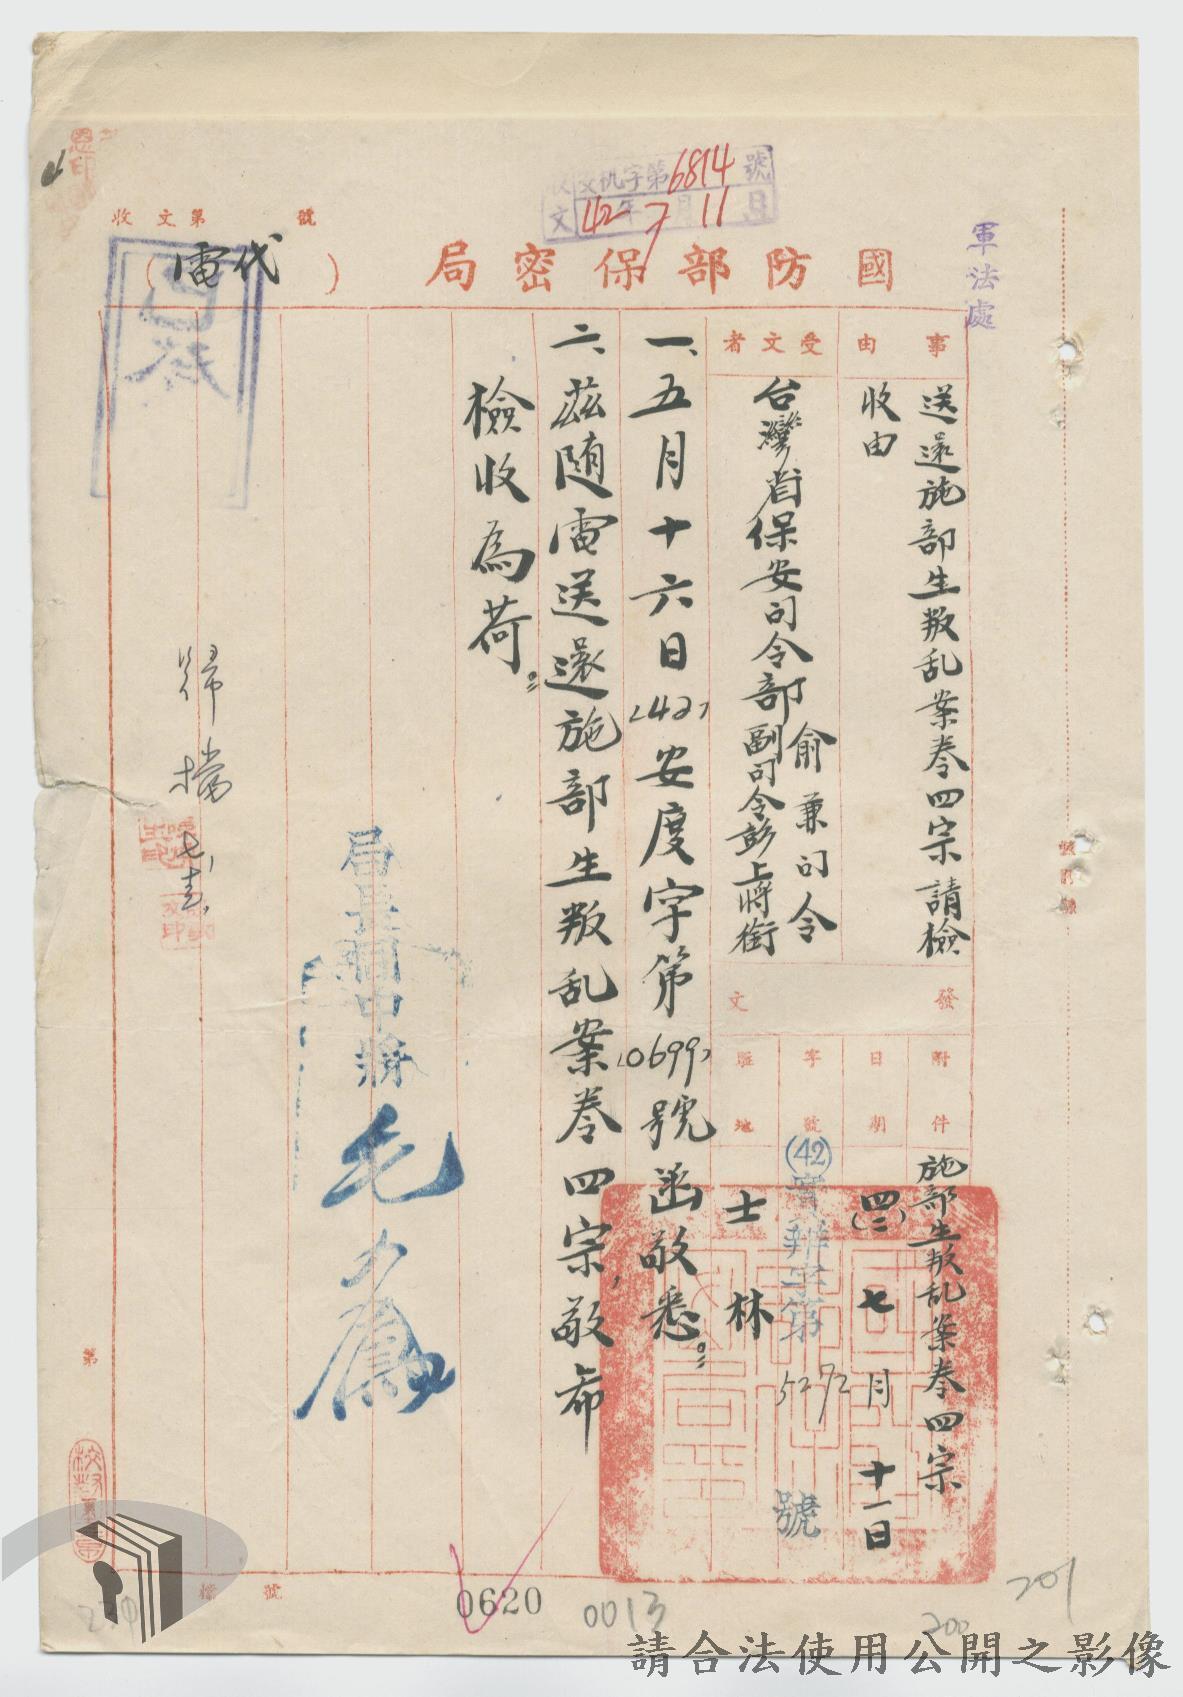 收文機字第6814號
42年7月11日
軍法處
收文第 號
國防部保密局（代電）
事由
送還施部生叛乱案卷四宗請檢
收由
受文者
台灣省保安司令部俞兼司令
副司令彭上將銜
發文
附件
施部生叛乱案卷四宗
日期
(四二)七月十一日
字號
(42)實辦字第5292號
駐地
士林
一、五月十六日(42)安度字第0699號函敬悉。
二、茲隨電送還施部生叛乱案卷四宗，敬希
檢收為荷。
局長 中將 毛人鳳
歸檔
第
檔號
0620
0013
200
201
請合法使用公開之影像